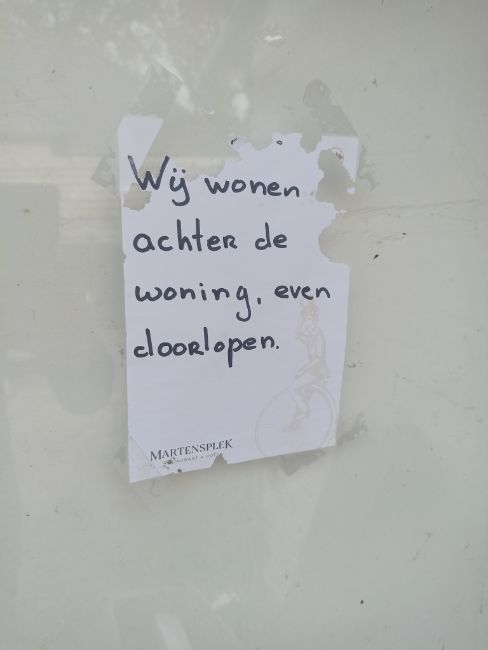 Wij wonen
achter de
woning, even
doorlopen.
MARTENSPLEK
RESTAURANT & HOTEL